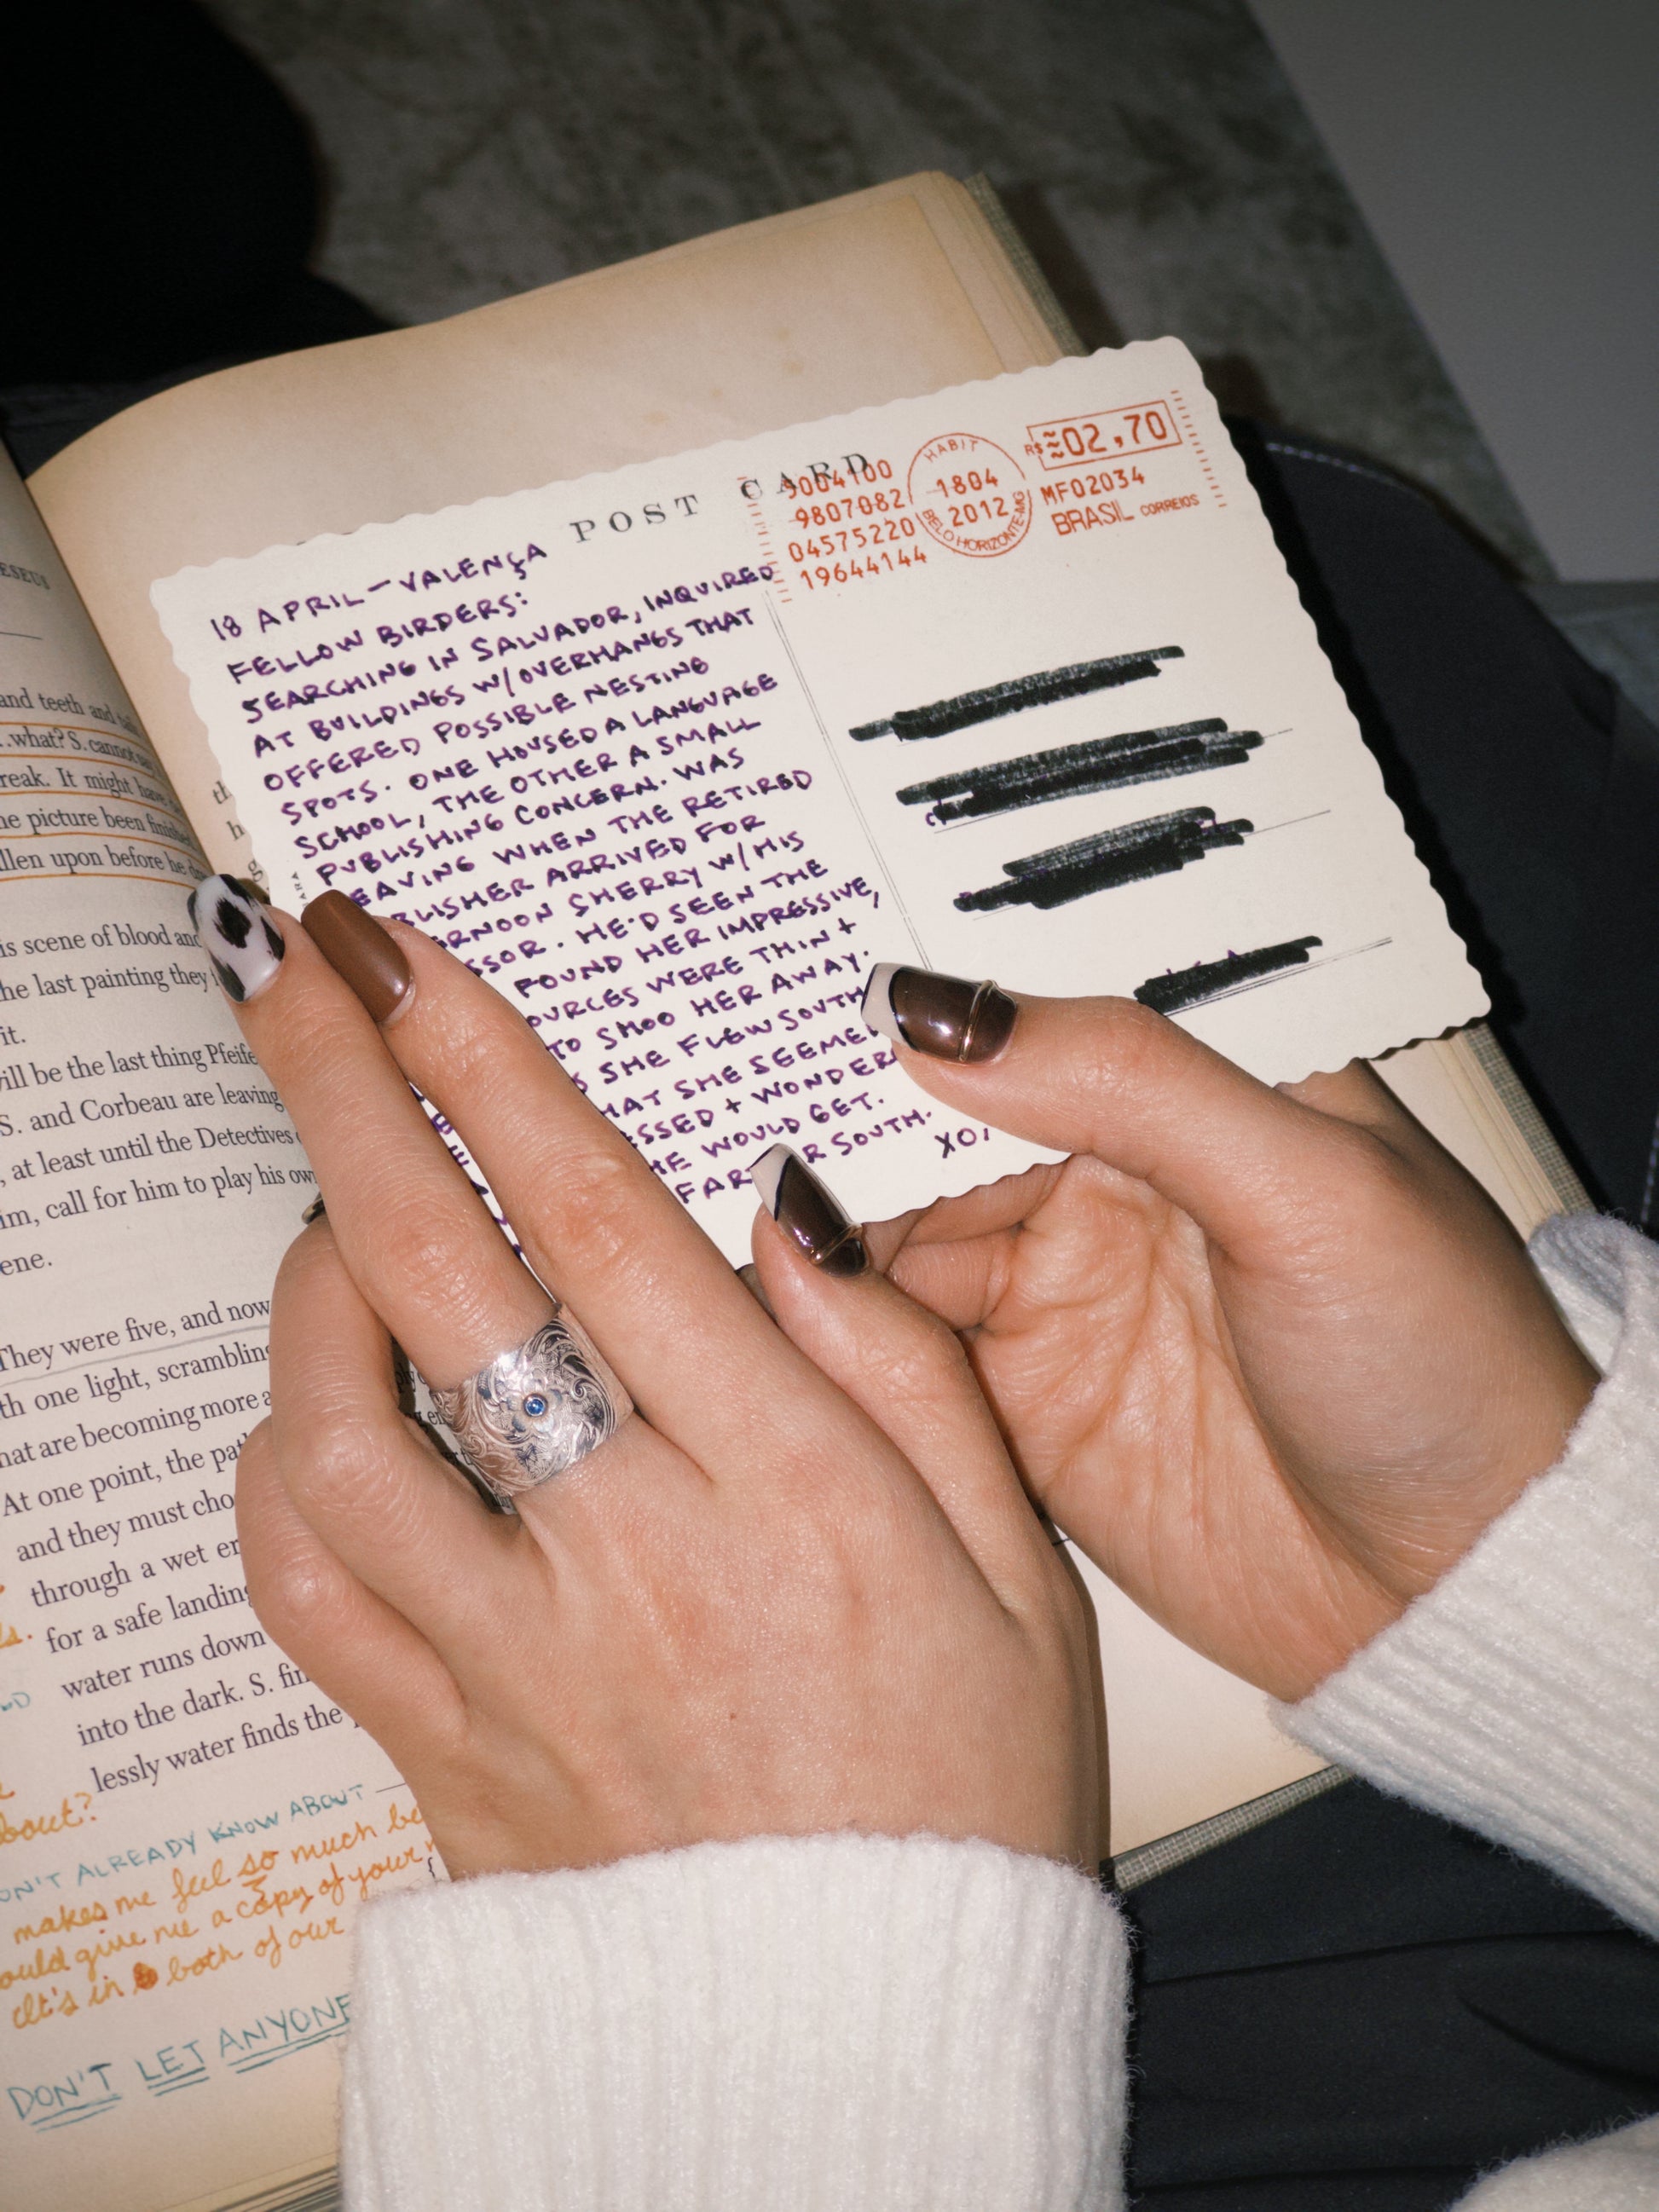 POST CARD
9004100
9807082
04575220
19644144
HABIT
1804
2012
BELO HORIZONTE-MG
R$ ≈02,70
MF02034
BRASIL CORREIOS
18 APRIL — VALENÇA
FELLOW BIRDERS:
SEARCHING IN SALVADOR, INQUIRED
AT BUILDINGS W/OVERHANGS THAT
OFFERED POSSIBLE NESTING
SPOTS. ONE HOUSED A LANGUAGE
SCHOOL, THE OTHER A SMALL
PUBLISHING CONCERN. WAS
LEAVING WHEN THE RETIRED
BLISHER ARRIVED FOR
RNOON SHERRY W/HIS
SSOR. HE'D SEEN THE
FOUND HER IMPRESSIVE,
OURCES WERE THIN +
TO SHOO HER AWAY.
SHE FLEW SOUTH
HAT SHE SEEME
ESSED + WONDER
HE WOULD GET.
FAR R SOUTH.
XO,
ESEUS
and teeth and
..what? S. cannot
reak. It might have
he picture been finished
llen upon before he
is scene of blood and
he last painting they
it.
ill be the last thing Pfeife
S. and Corbeau are leaving
, at least until the Detectives
im, call for him to play his own
ene.
They were five, and now
th one light, scrambling
hat are becoming more a
At one point, the pat
and they must cho
through a wet er
for a safe landing
water runs down
into the dark. S. fin
lessly water finds the
bout?
ON'T ALREADY KNOW ABOUT —
makes me feel so much be
ould give me a copy of your
It's in both of our
DON'T LET ANYONE